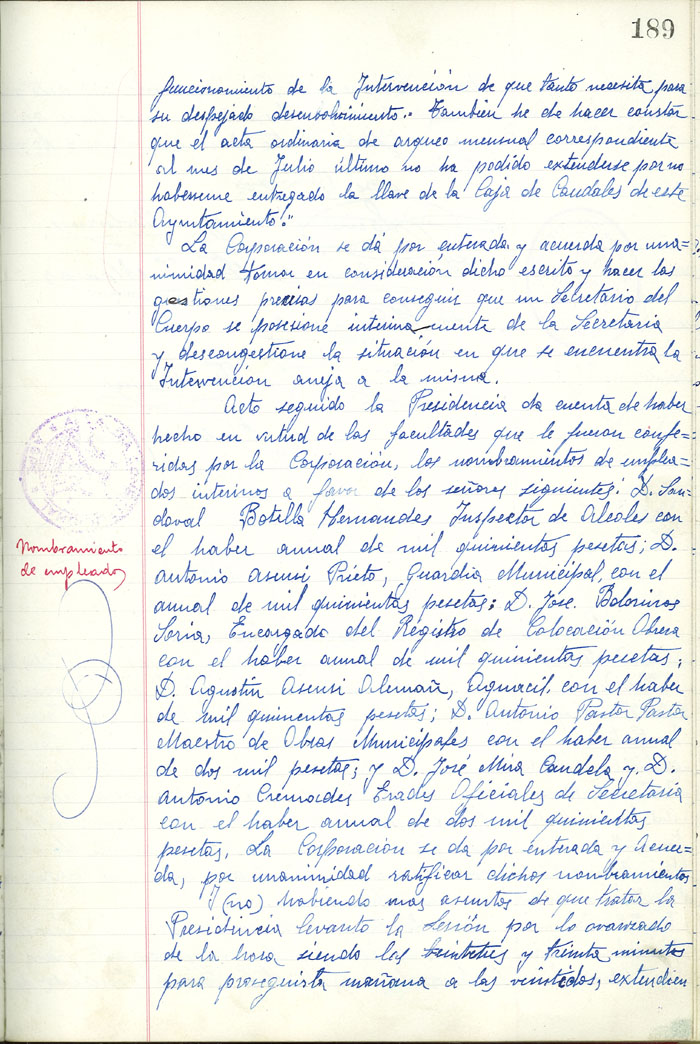 189
funcionamiento de la Intervención de que tanto necesita para
su despejado desenvolvimiento.. Tambien he de hacer constar
que el acta ordinaria de arqueo mensual correspondiente
al mes de Julio último no ha podido extenderse por no
haberseme entregado la llave de la Caja de Caudales de este
Ayuntamiento."
La Corporación se dá por enterada y acuerda por una=
nimidad tomar en consideración dicho escrito y hacer las
gestiones precisas para conseguir que un Secretario del
Cuerpo se posesione interinamente de la Secretaria
y descongestione la situación en que se encuentra la
Intervención aneja a la misma.
Acto seguido la Presidencia da cuenta de haber
hecho en virtud de las facultades que le fueron confe=
ridas por la Corporación, los nombramientos de emplea=
dos interinos a favor de los señores siguientes: D. San=
doval Botella Hernandes Inspector de Alcoles con
Nombramiento
de empleados
el haber annal de mil quinientas pesetas; D.
Antonio Asensi Prieto, Guardia Municipal, con el
annal de mil quinientas pesetas; D. José Bolorinos
Soria, Encargado del Registro de Colocación Obrera
con el haber annal de mil quinientas pesetas;
D. Agustin Asensi Alemañ, Aguacil, con el haber
de mil quinientas pesetas; D. Antonio Pastor Pastor
Maestro de Obras Municipales con el haber annal
de dos mil pesetas; y D. José Mira Candela y D.
Antonio Cremades Erades Oficiales de Secretaria
con el haber annal de dos mil quinientas
pesetas. La Corporación se da por enterada y Acuer=
da, por unanimidad ratificar dichos nombramientos
Y (no) habiendo mas asuntos de que tratar la
Presidencia levanto la Sesión por lo avanzado
de la hora siendo las veintitres y treinta minutos
para proseguirla mañana a las veintidos, extendien